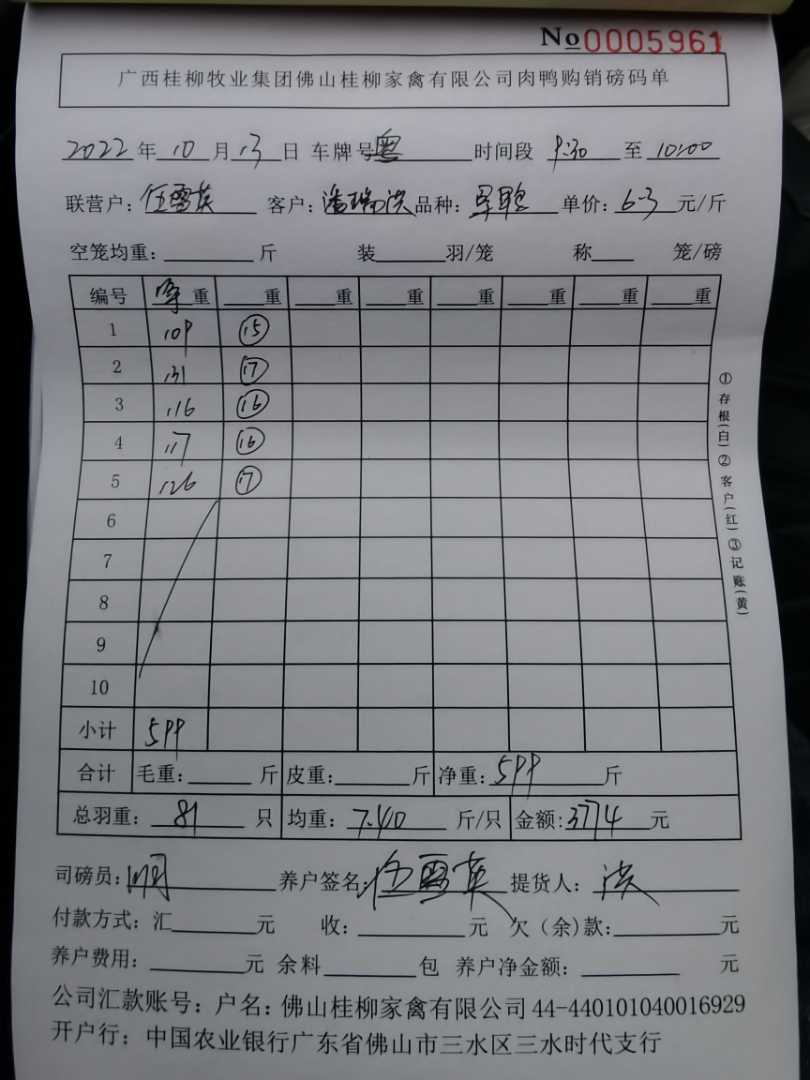 No 0005961
广西桂柳牧业集团佛山桂柳家禽有限公司肉鸭购销磅码单
2022年10月13日 车牌号粤 时间段 9:30 至 10:00
联营户:伍雪英 客户:潘瑞洪 品种: 单价:6-3元/斤
空笼均重: 斤 装 羽/笼 称 笼/磅
编号 净重 重 重 重 重 重 重 重
1 109 ⑮
2 131 ⑰
3 116 ⑯
4 117 ⑯
5 126 ⑰
6
7
8
9
10
小计 599
合计 毛重: 斤 皮重: 斤 净重:599斤
总羽重:81只 均重:7.40斤/只 金额:3774元
司磅员:明 养户签名:伍雪英 提货人:洪
付款方式:汇 元 收: 元 欠(余)款: 元
养户费用: 元 余料 包 养户净金额: 元
公司汇款账号:户名:佛山桂柳家禽有限公司44-440101040016929
开户行:中国农业银行广东省佛山市三水区三水时代支行
①存根(白)②客户(红)③记账(黄)